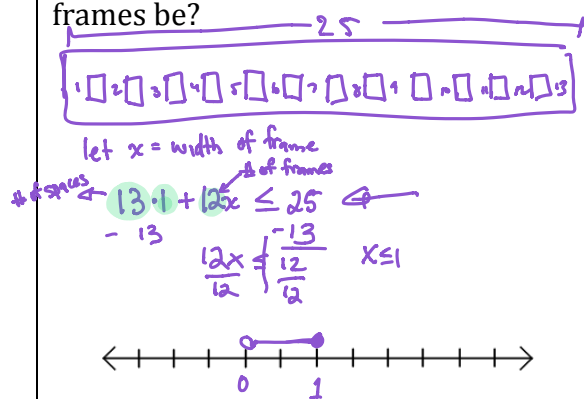 frames be?
25
1 2 3 4 5 6 7 8 9 10 11 12 13
let x = width of frame
# of frames
# of spaces
13·1 + 12x ≤ 25
- 13 -13
12x ≤ 12
12 12
x ≤ 1
0 1